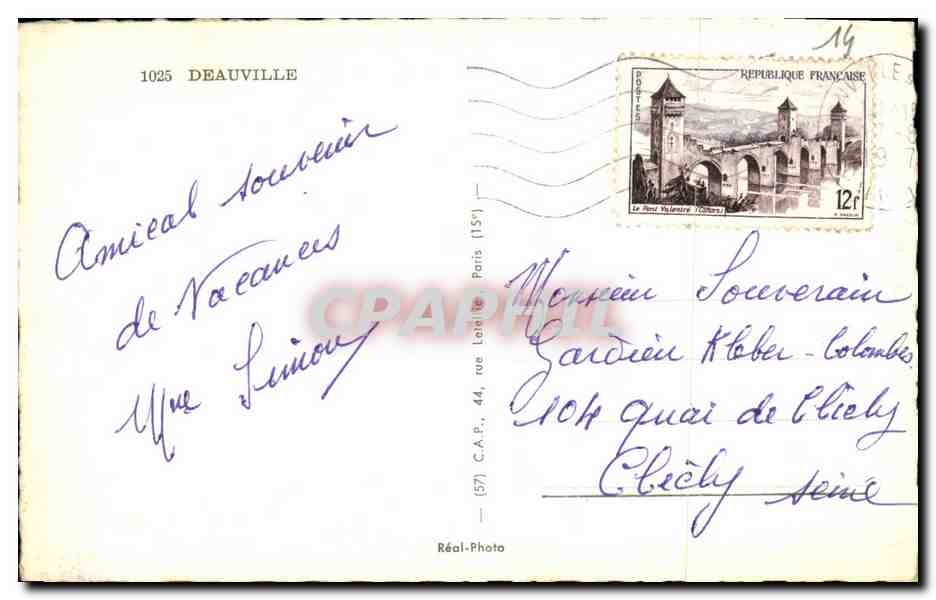 1025 DEAUVILLE
14
REPUBLIQUE FRANÇAISE
POSTES
Le Pont Valentré (Cahors)
12f
Amical souvenir
de Vacances
Mme Simon
(57) C.A.P., 44, rue Letellier Paris (15e)
Monsieur Souverain
Gardien Kleber-Colombes
104 quai de Clichy
Clichy Seine
CPAPHIL
Réal-Photo